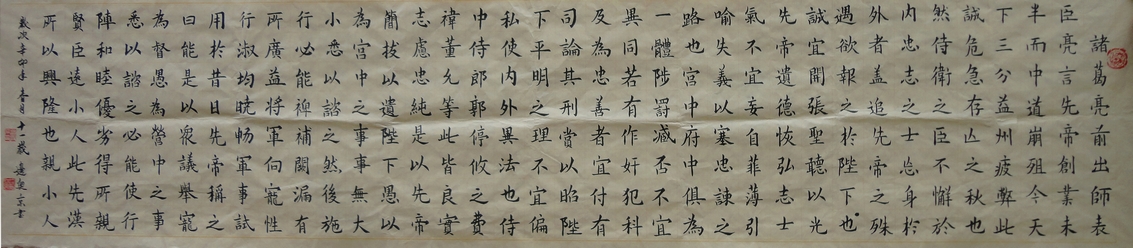 諸葛亮前出師表
臣亮言先帝創業未
半而中道崩殂今天
下三分益州疲弊此
誠危急存亡之秋也
然侍衛之臣不懈於
內忠志之士忘身於
外者蓋追先帝之殊
遇欲報之於陛下也
誠宜開張聖聽以光
先帝遺德恢弘志士
氣不宜妄自菲薄引
喻失義以塞忠諫之
路也宮中府中俱為
一體陟罰臧否不宜
異同若有作奸犯科
及為忠善者宜付有
司論其刑賞以昭陛
下平明之理不宜偏
私使內外異法也侍
中侍郎郭停攸之費
禕董允等此皆良實
志慮忠純是以先帝
簡拔以遺陛下愚以
為宮中之事事無大
小悉以諮之然後施
行必能裨補闕漏有
所廣益將軍向寵性
行淑均曉暢軍事試
用於昔日先帝稱之
曰能是以眾議舉寵
為督愚為營中之事
悉以諮之必能使行
陣和睦優劣得所親
賢臣遠小人此先漢
所以興隆也親小人
歲次辛卯年春月十歲京書